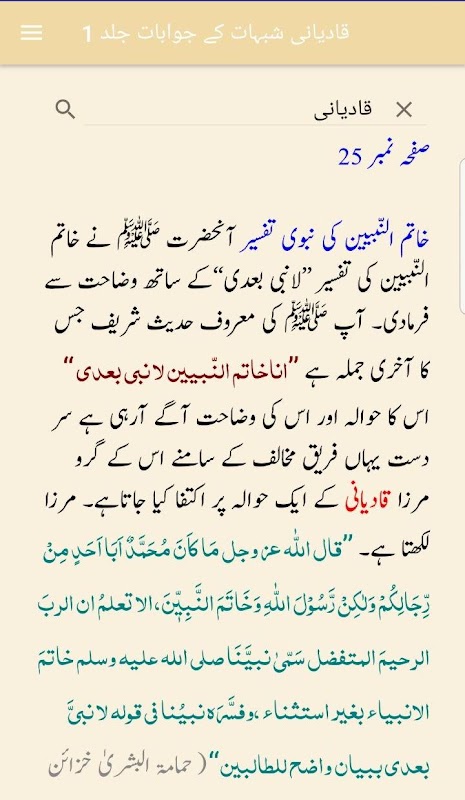 قادیانی شبہات کے جوابات جلد 1
قادیانی
صفحہ نمبر 25
خاتم النّبیین کی نبوی تفسیر آنحضرت ﷺ نے خاتم
النّبیین کی تفسیر ”لانبی بعدی“ کے ساتھ وضاحت سے
فرمادی۔ آپ ﷺ کی معروف حدیث شریف جس
کا آخری جملہ ہے ”اناخاتم النّبیین لانبی بعدی“
اس کا حوالہ اور اس کی وضاحت آگے آرہی ہے سر
دست یہاں فریق مخالف کے سامنے اس کے گرو
مرزا قادیانی کے ایک حوالہ پر اکتفا کیا جاتاہے۔ مرزا
لکھتا ہے۔ ”قال اللہ عزوجل مَا كَانَ مُحَمَّدٌ اَبَا اَحَدٍ مِنْ
رِّجَالِكُمْ وَلٰكِنْ رَّسُوْلَ اللہِ وَخَاتَمَ النَّبِیّٖنَ،الا تعلمُ ان الربَ
الرحیمَ المتفضل سَمّٰی نبیَّنَا صلی اللہ علیہ وسلم خاتمَ
الانبیاء بغیر استثناء ،وفسَّرَہ نبیُنا فی قولہ لا نبیَّ
بعدی ببیان واضح للطالبین“ ( حمامۃ البشریٰ خزائن